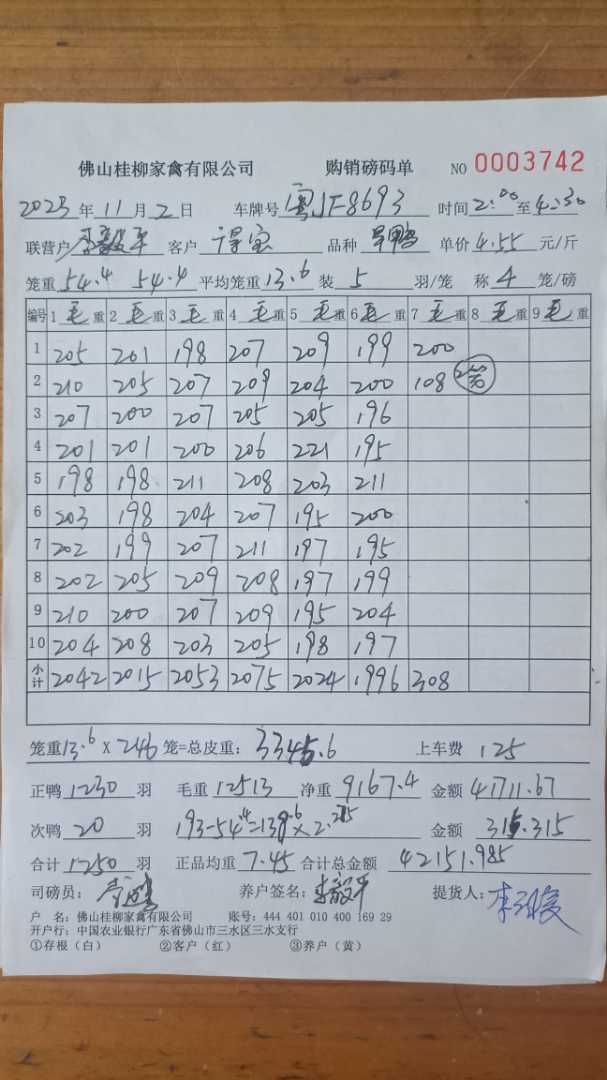 佛山桂柳家禽有限公司 购销磅码单 NO 0003742
2025年11月2日 车牌号 粤JF8693 时间 2:00至4:30
联营户 李毅平 客户 得宝 品种 旱鸭 单价 4.55 元/斤
笼重 54.4 54.4 平均笼重 13.6 装 5 羽/笼 称 4 笼/磅
编号 1 毛重 2 毛重 3 毛重 4 毛重 5 毛重 6 毛重 7 毛重 8 毛重 9 毛重
1 205 201 198 207 209 199 200
2 210 205 207 209 204 200 108
3 207 200 207 205 205 196
4 201 201 200 206 221 195
5 198 198 211 208 203 211
6 203 198 204 207 195 200
7 202 199 207 211 197 195
8 202 205 209 208 197 199
9 210 200 207 209 195 204
10 204 208 203 205 198 197
小计 2042 2015 2053 2075 2024 1996 308
笼重 13.6 X 246 笼=总皮重: 3345.6 上车费 125
正鸭 1230 羽 毛重 12513 净重 9167.4 金额 41711.67
次鸭 20 羽 193-54.4=138.6×2.275 金额 315.315
合计 1250 羽 正品均重 7.45 合计总金额 42151.985
司磅员: 养户签名: 李毅平 提货人:
户 名: 佛山桂柳家禽有限公司 账号: 444 401 010 400 169 29
开户行: 中国农业银行广东省佛山市三水区三水支行
①存根(白) ②客户(红) ③养户(黄)